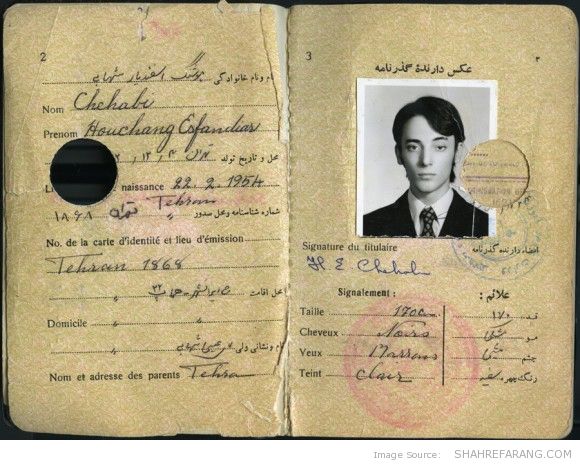 2
نام و نام خانوادگی هوشنگ اسفندیار شهابی
Nom Chehabi
Prenom Houchang Esfandiar
محل و تاریخ تولد
naissance 22.2.1954
شماره شناسنامه ومحل صدور تهران ۱۸۶۸
Tehran
No. de la carte d'identité et lieu d'émission
Tehran 1868
محل اقامت
Domicile "
نام ونشانی ولی
Nom et adresse des parents Tehran
3
۳
عکس دارندهٔ گذرنامه
Signature du titulaire امضاء دارنده گذرنامه
H. E. Chehabi
Signalement : علائم :
Taille قد ۱۷۰
Cheveux Noirs مو مشکی
Yeux Marrons چشم میشی
Teint Clair رنگ چهره سفید
Image Source: SHAHREFARANG.COM